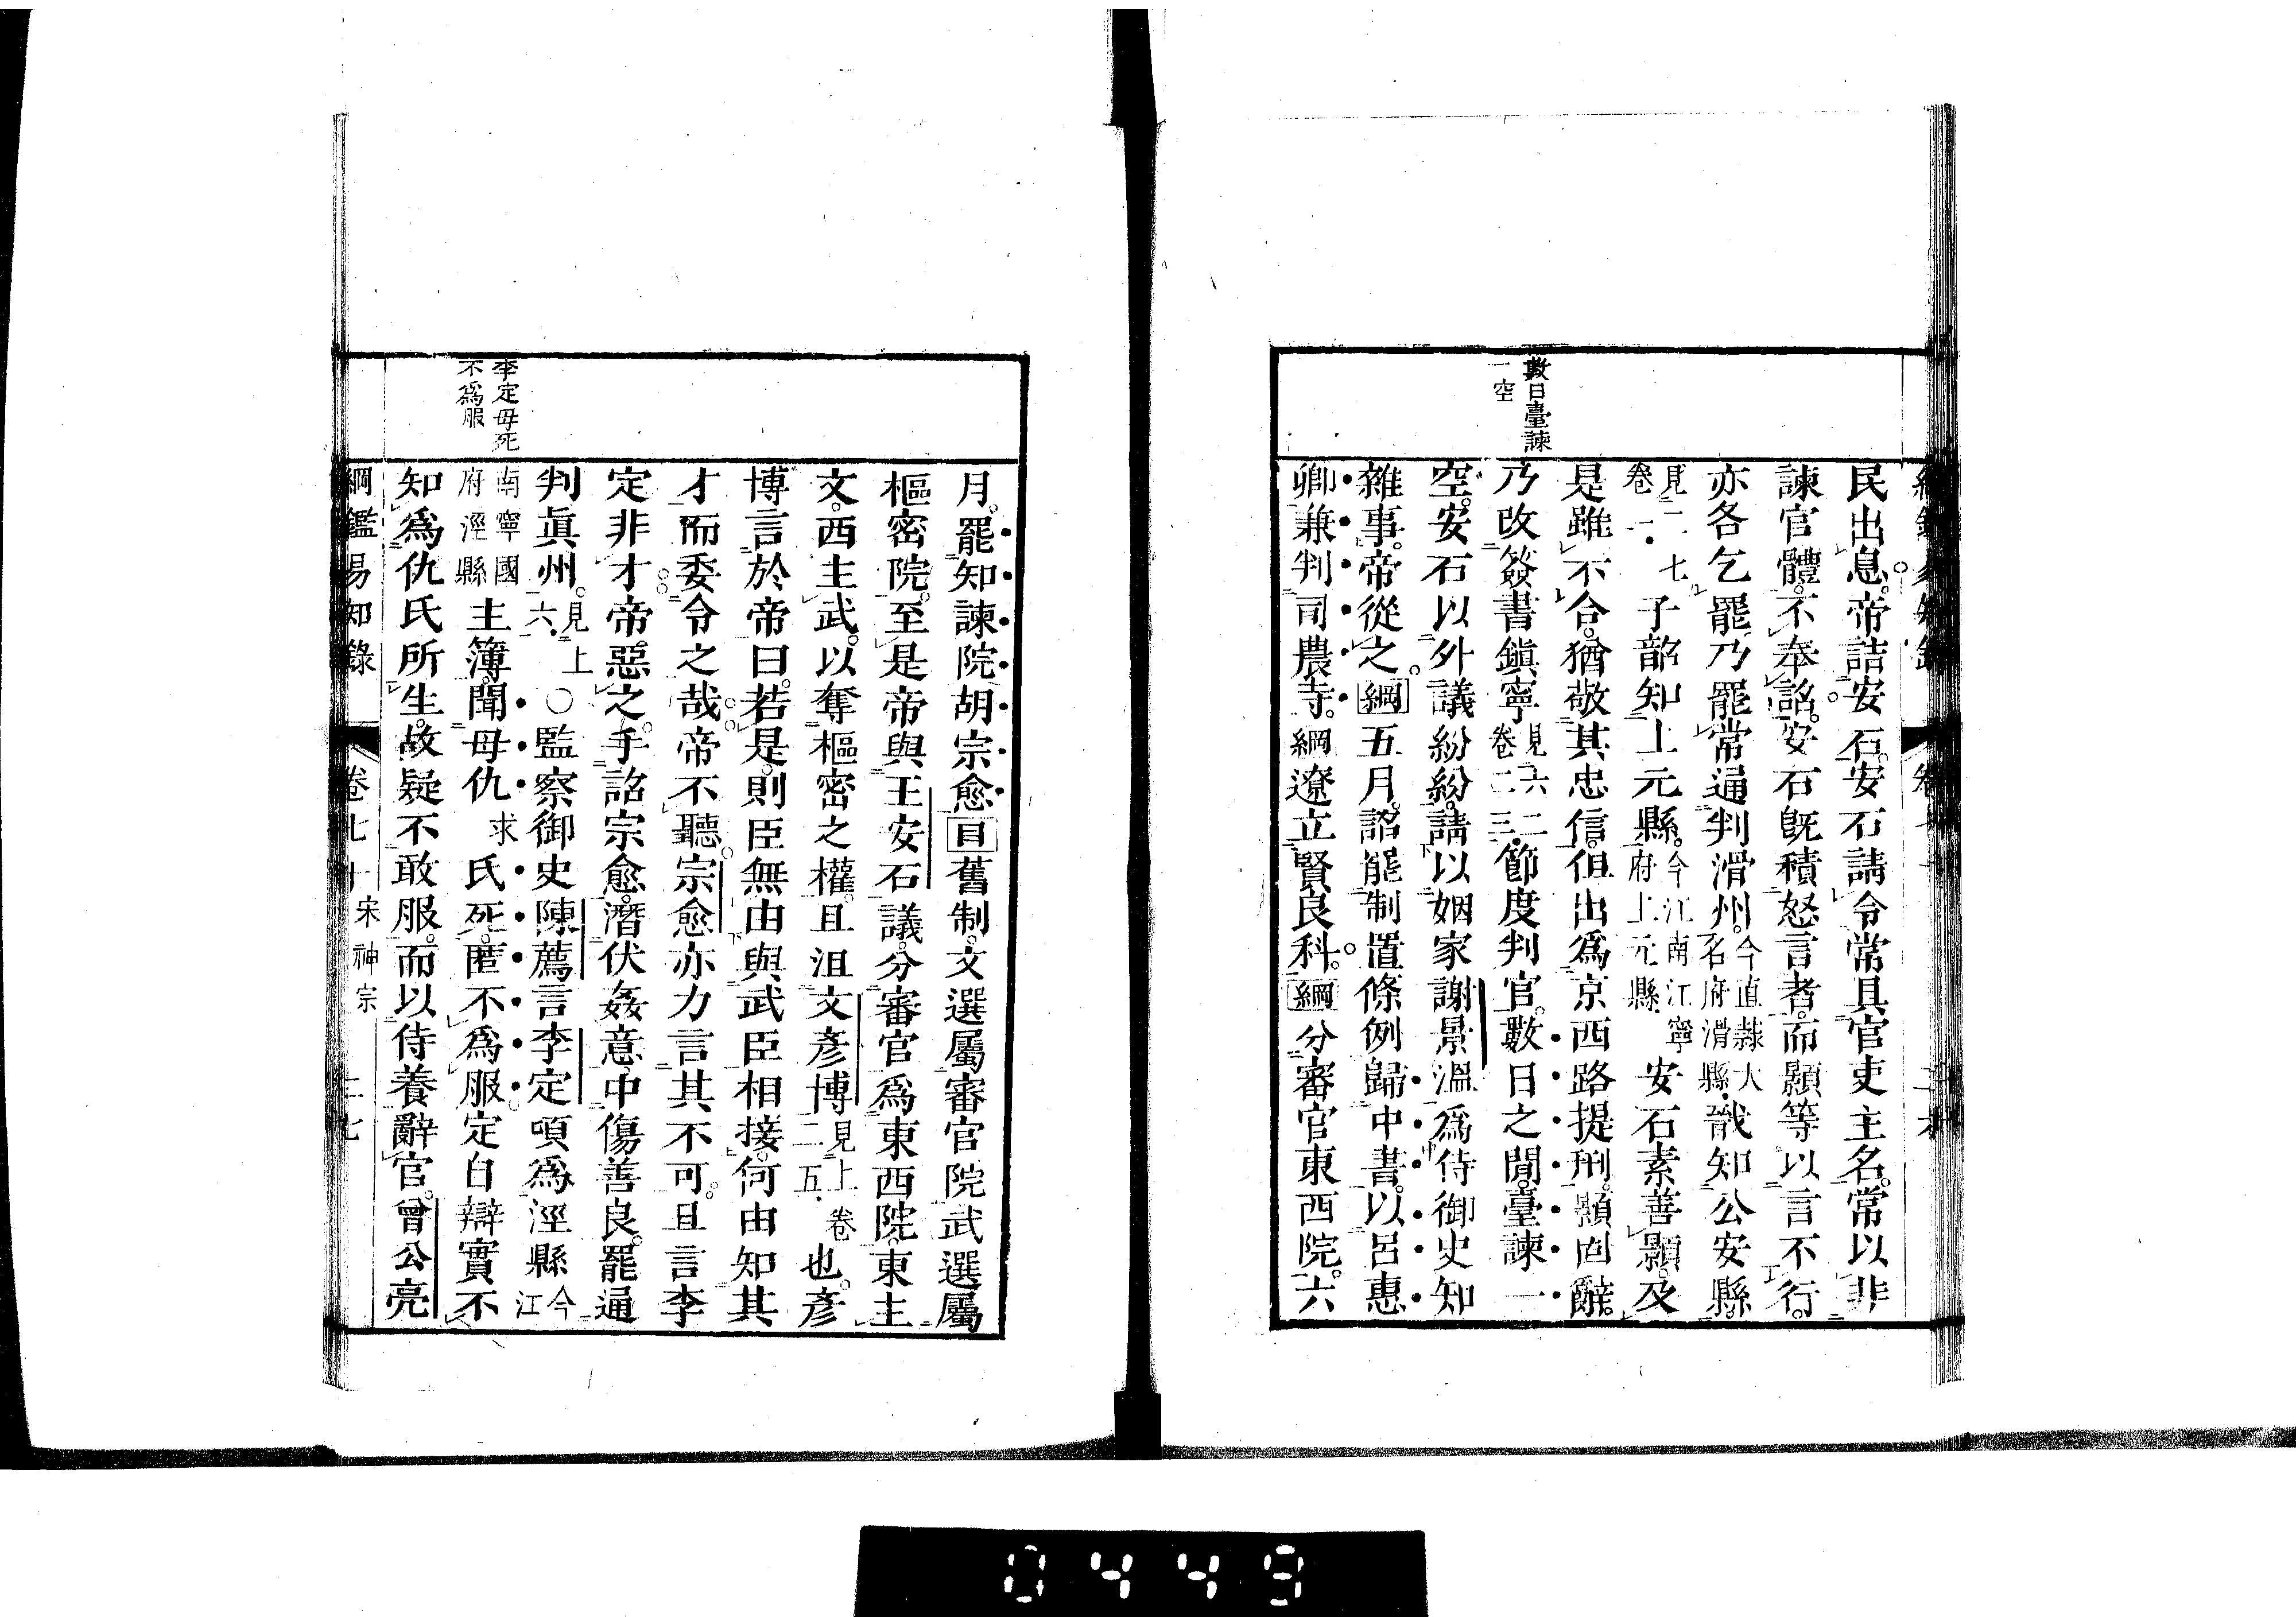 數日臺諫
一空
民出息。帝詰安石。安石請令常具官吏主名。常以非
諫官體。不奉詔。安石既積怒言者。而顥等以言不行。
亦各乞罷。乃罷常通判滑州。今直隸大名府滑縣。戩知公安縣。
見二七卷一。子韶知上元縣。今江南江寧府上元縣。安石素善顥。及
是雖不合。猶敬其忠信。但出為京西路提刑。顥固辭。
乃改簽書鎮寧見六二卷二三。節度判官。數日之閒。臺諫一
空。安石以外議紛紛。請以姻家謝景溫為侍御史知
雜事。帝從之。綱五月。詔罷制置條例歸中書。以呂惠
卿兼判司農寺。綱遼立賢良科。綱分審官東西院。六
月。罷知諫院胡宗愈目舊制。文選屬審官院武選屬
樞密院。至是帝與王安石議。分審官為東西院。東主
文。西主武。以奪樞密之權。且沮文彥博見上卷二五。也。彥
博言於帝曰。若是。則臣無由與武臣相接。何由知其
才而委令之哉。帝不聽。宗愈亦力言其不可。且言李
定非才。帝惡之。手詔宗愈。潛伏姦意。中傷善良。罷通
判眞州。見上六。〇監察御史陳薦言李定頃為涇縣今江
南寧國府涇縣主簿。聞母仇求氏死。匿不為服。定自辯實不
知為仇氏所生。故疑不敢服。而以侍養辭官。曾公亮
李定母死
不為服
綱鑑易知錄 卷七十 宋神宗 二七
0449